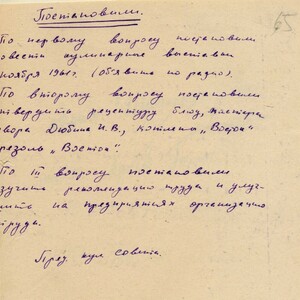 65
Постановили.
По первому вопросу постановили
овести кулинарные выставки
ноября 1961г. (объявить по радио).
По второму вопросу постановили
твердить рецептуру блюд, мастера
вора Дюбина И.В., котлета „Восток"
" Восток".
По III вопросу постановили
зучить рекомендации труда и улуч-
шить на предприятиях организацию
труда.
Пред. кул совета.